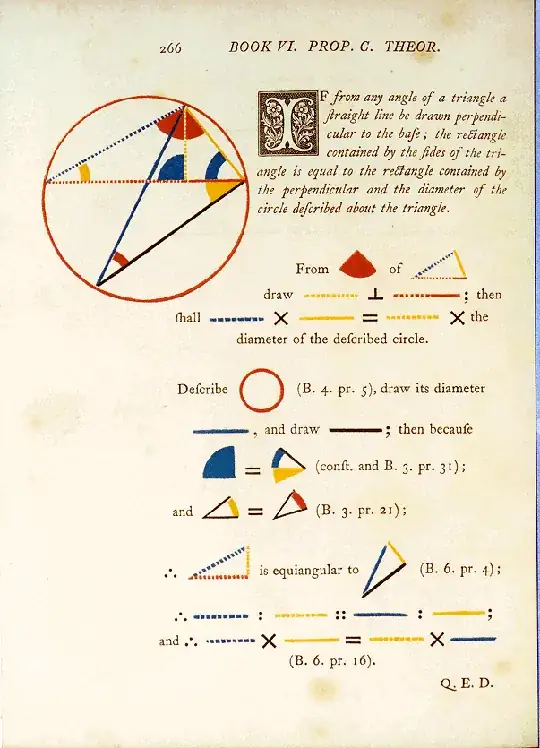 266 BOOK VI. PROP. C. THEOR.
IF from any angle of a triangle a
ſtraight line be drawn perpendi-
cular to the baſe ; the rectangle
contained by the ſides of the tri-
angle is equal to the rectangle contained by
the perpendicular and the diameter of the
circle deſcribed about the triangle.
From of
draw ⊥ ; then
ſhall × = × the
diameter of the deſcribed circle.
Deſcribe (B. 4. pr. 5), draw its diameter
, and draw ; then becauſe
= (conſt. and B. 3. pr. 31);
and = (B. 3. pr. 21);
∴ is equiangular to (B. 6. pr. 4);
∴ : :: : ;
and ∴ × = ×
(B. 6. pr. 16).
Q. E. D.